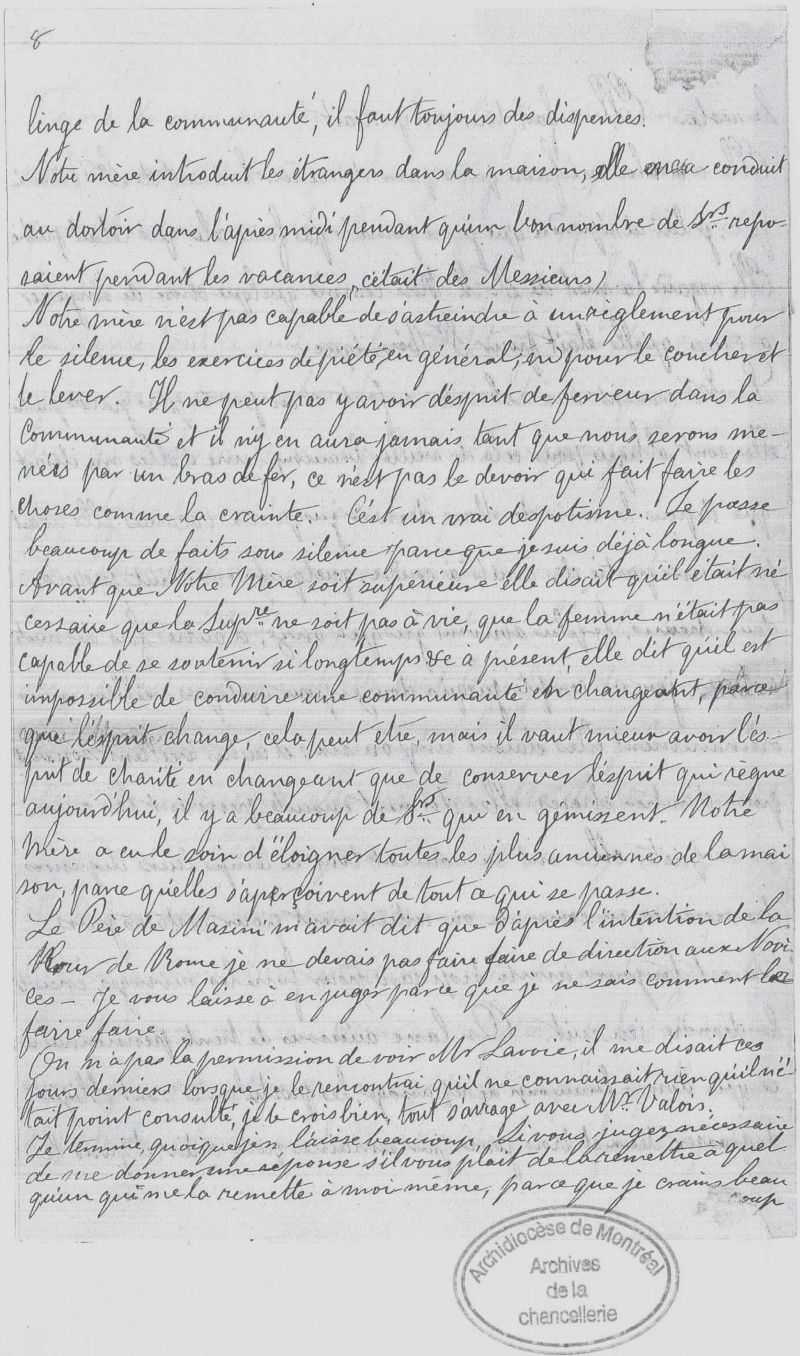 8
linge de la communauté, il faut toujours des dispenses.
Notre mère introduit les étrangers dans la maison, elle en a conduit
au dortoir dans l'après midi pendant qu'un bon nombre de Srs repo-
saient pendant les vacances, c'était des Messieurs)
Notre mère n'est pas capable de s'astreindre à un règlement pour
le silence, les exercices de piété, en général, ni pour le coucher et
le lever. Il ne peut pas y avoir d'esprit de ferveur dans la
communauté et il n'y en aura jamais tant que nous serons me-
nées par un bras de fer, ce n'est pas le devoir qui fait faire les
choses comme la crainte. C'est un vrai despotisme. Je passe
beaucoup de faits sous silence parce que je suis déjà longue.
Avant que Notre Mère soit supérieure elle disait qu'il était né
cessaire que la Supre ne soit pas à vie, que la femme n'était pas
capable de se soutenir si longtemps &c à présent, elle dit qu'il est
impossible de conduire une communauté en changeant, parce
que l'esprit change, cela peut etre, mais il vaut mieux avoir l'es-
prit de charité en changeant que de conserver l'esprit qui règne
aujourd'hui, il y a beaucoup de Srs qui en gémissent. Notre
Mère a eu le soin d'éloigner toutes les plus anciennes de la mai
son, parce qu'elles s'aperçoivent de tout ce qui se passe.
Le Père de Masini m'avait dit que d'après l'intention de la
Cour de Rome je ne devais pas faire faire de direction aux Novi-
ces - Je vous laisse à en juger parce que je ne sais comment les
faire faire.
On n'a pas la permission de voir Mr Lavoie, il me disait ces
jours derniers lorsque je le rencontrai qu'il ne connaissait rien qu'il n'é-
tait point consulté, je le crois bien, tout s'arrage avec Mr. Valois.
Je termine, quoique j'en laisse beaucoup, Si vous jugez nécessaire
de me donner une réponse s'il vous plait de la remettre à quel
qu'un qui me la remette à moi même, parce que je crains beau
coup
Archidiocèse de Montréal
Archives
de la
chancellerie